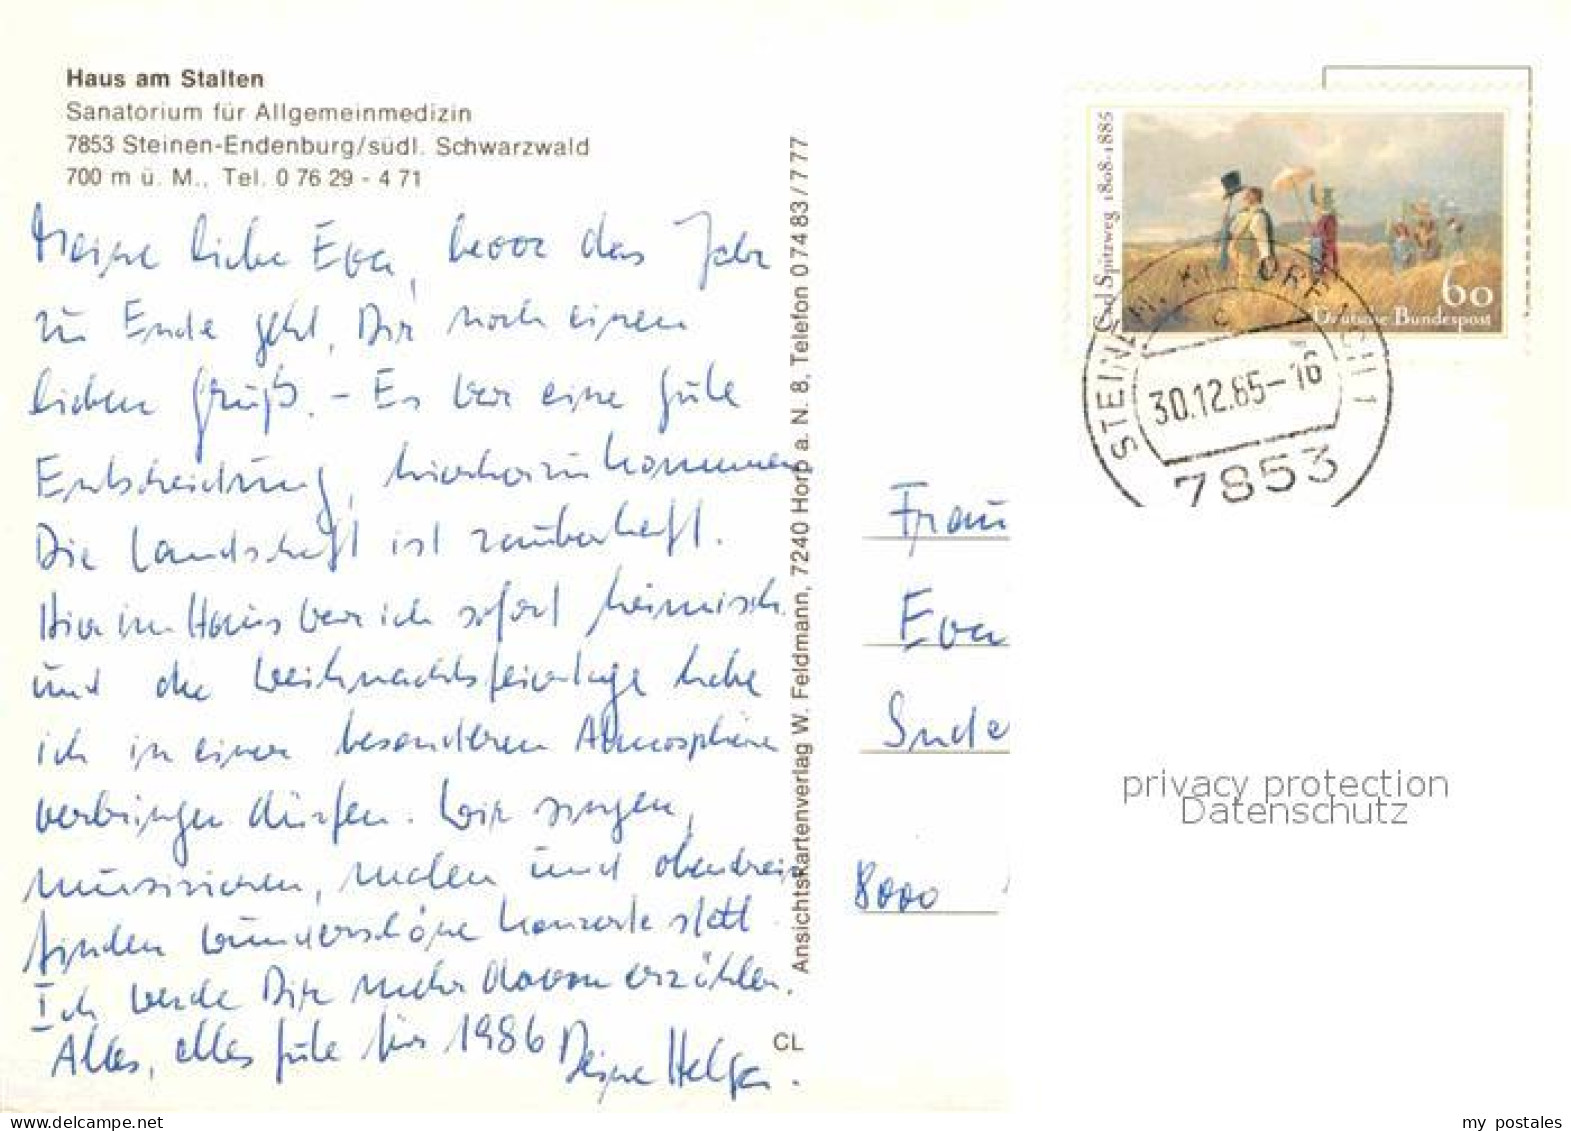 Haus am Stalten
Sanatorium für Allgemeinmedizin
7853 Steinen-Endenburg/südl. Schwarzwald
700 m ü. M., Tel. 0 76 29 - 4 71
Meine liebe Eva, bevor das Jahr
zu Ende geht, Dir noch einen
lieben Gruß. - Es war eine gute
Entscheidung, hierherzukommen
Die Landschaft ist zauberhaft.
Hier im Haus war ich sofort heimisch
und die Weihnachtsfeiertage habe
ich in einer besonderen Atmosphäre
verbringen dürfen. Wir singen,
musizieren, malen und obendrein
finden wunderschöne Konzerte statt.
Ich werde Dir mehr davon erzählen.
Alles, alles Gute für 1986 Deine Helga.
CL
Ansichtskartenverlag W. Feldmann, 7240 Horb a. N. 8, Telefon 0 74 83 / 7 77
Carl Spitzweg 1808-1885
60
Deutsche Bundespost
30.12.85-16
7853
Frau
Eva
Sude
8000
privacy protection
Datenschutz
www.delcampe.net
my postales